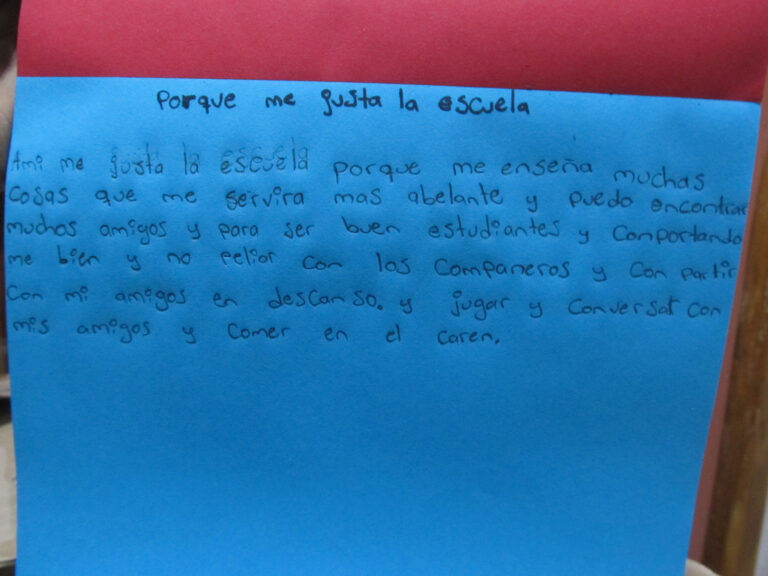 Porque me gusta la escuela
Ami me gusta la escuela porque me enseña muchas
cosas que me servira mas abelante y puedo encontrar
muchos amigos y para ser buen estudiantes y comportando
me bien y no pelior con los companeros y con partir
con mi amigos en descanso. y jugar y conversar con
mis amigos y comer en el caren.